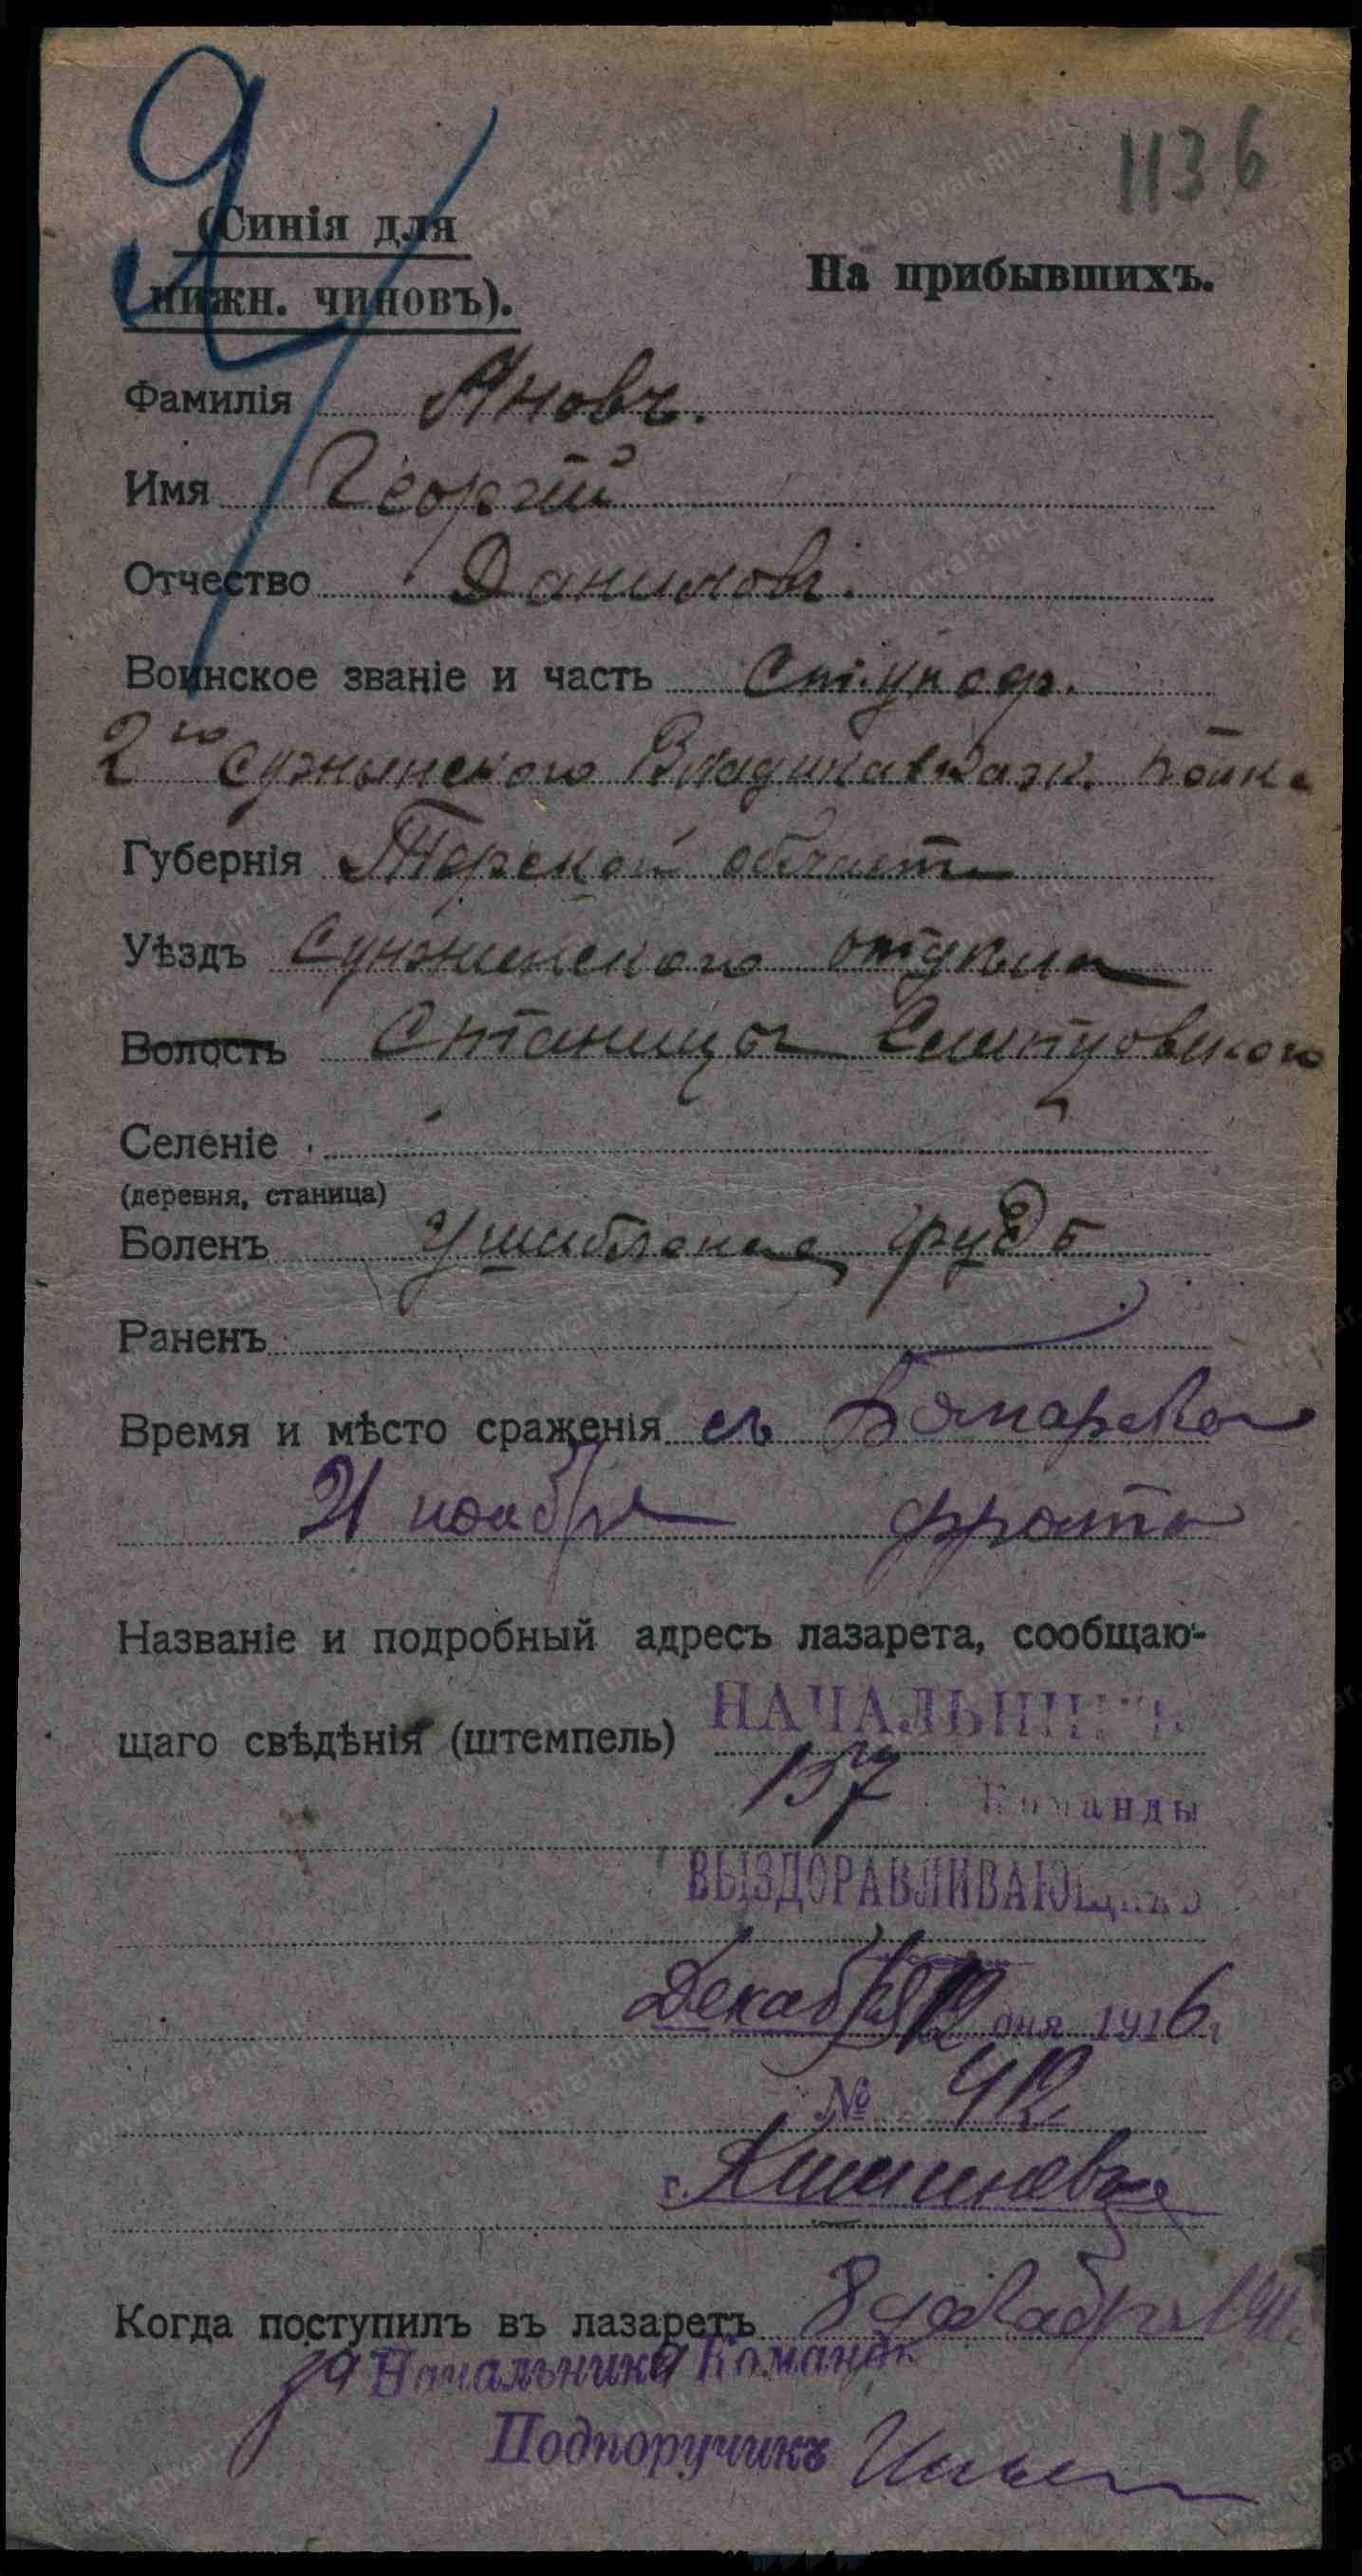 Я
1136
(Синія для
нижн. чиновъ).
На прибывшихъ.
Фамилія Яновъ.
Имя Георгій
Отчество Даниловъ.
Воинское званіе и часть Ст. ун оф.
2го Владикавказк. полка
Губернія Терской области
Уѣздъ Сунженскаго отдѣла
Волость Станицы
Селеніе
(деревня, станица)
Боленъ грудь
Раненъ
Время и мѣсто сраженія съ
21 ноября фронта
Названіе и подробный адресъ лазарета, сообщаю-
щаго свѣдѣнія (штемпель) НАЧАЛЬНИКЪ
157 Команды
ВЫЗДОРАВЛИВАЮЩИХЪ
Декабря 12 дня 1916 г.
№ 412
г. Кишиневъ
Когда поступилъ въ лазаретъ 8 декабря
за Начальника Команды
Подпоручикъ
www.gwar.mil.ru